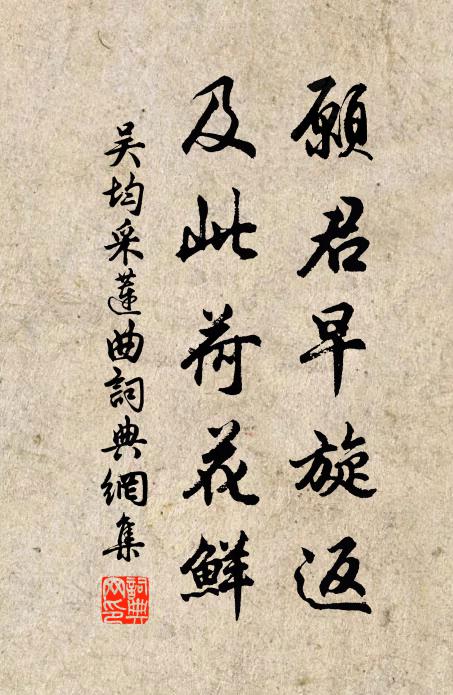 願君早旋返
及此荷花鮮
吴均采蓮曲詞典網集
詞典網印